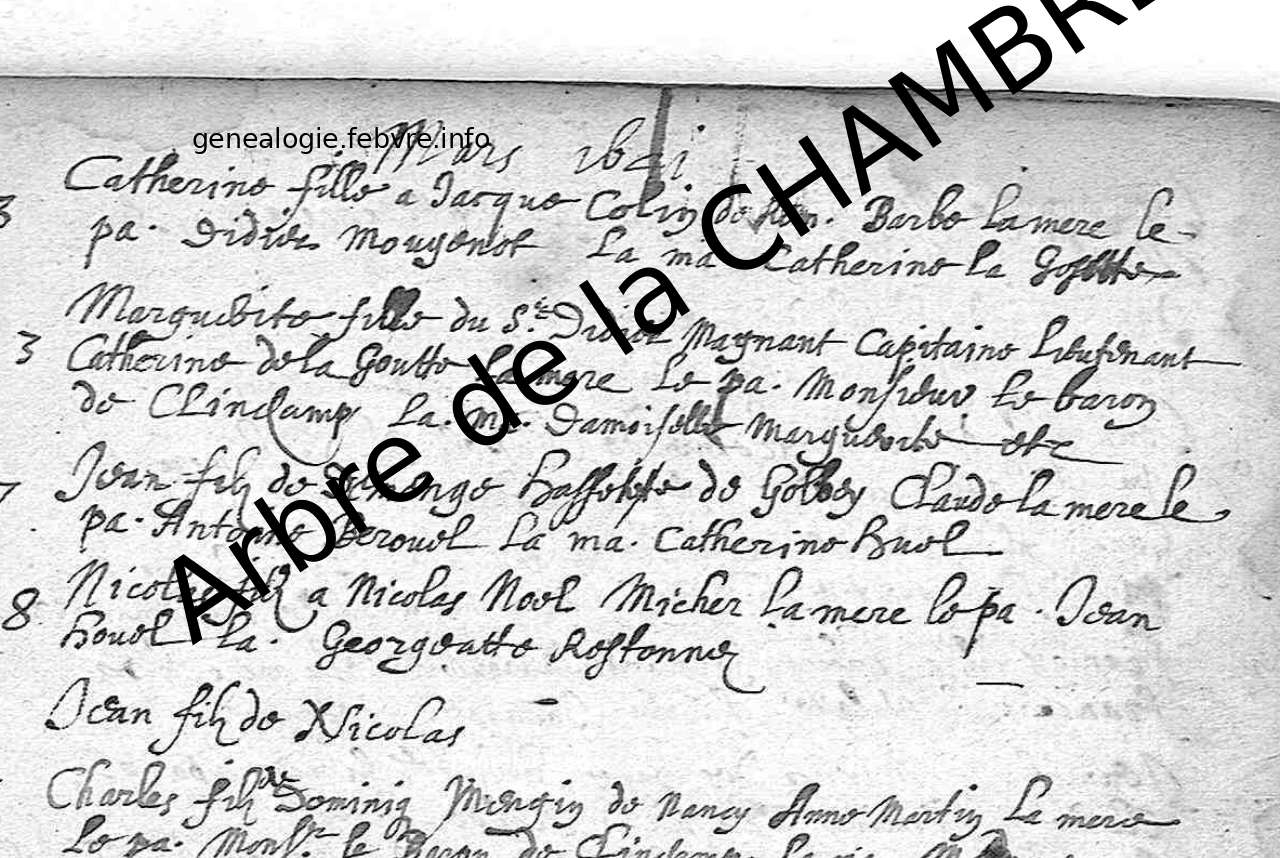 genealogie.febvre.info
Arbre de la CHAMBRE
Mars 1641
Catherine fille a Jacque Colin de Barbe la mere le
pa. Didier Mougenot La ma Catherine la
3 Marguerite fille du Sr. Didier Magnant Capitaine Lieutenant
Catherine de la Goutte la mere Le pa. Monsieur Le baron
de Clinchamp La. ma. Damoiselle Marguerite etc
7 Jean filz de Demenge de Golbey Claude la mere le
pa. Antoine Derouel La ma. Catherine Huel
8 Nicolas filz a Nicolas Noel Micher la mere le pa. Jean
houel la. Georgeatte
Jean filz de Nicolas
Charles filz de Dominiq Mengin de Nancy Anne Martin La mere
Le pa. Monsr. le Baron de Clinchamp la ma